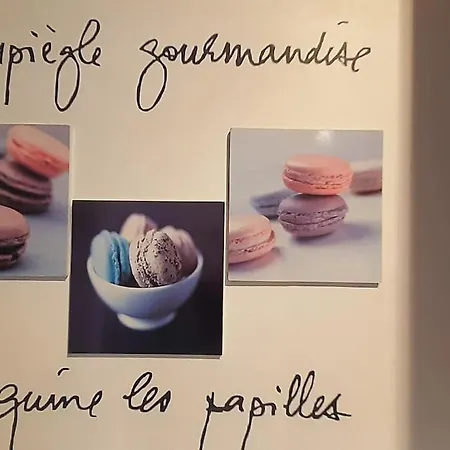 piègle gourmandise
quine les papilles